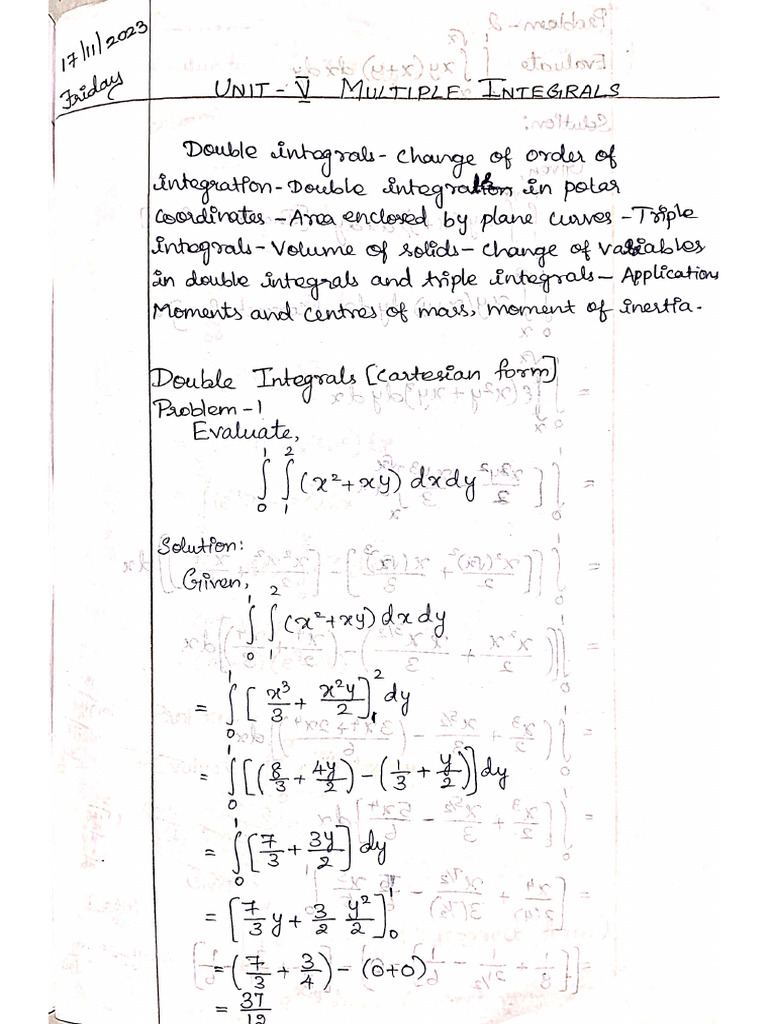 17/11/2023
Friday
UNIT-V MULTIPLE INTEGRALS
Double integrals - change of order of
integration - Double integrals in polar
coordinates - Area enclosed by plane curves - Triple
integrals - Volume of solids - change of variables
in double integrals and triple integrals - Applications
Moments and centres of mass, moment of inertia.
Double Integrals [cartesian form]
Problem-1
Evaluate,
∫₀¹ ∫₁² (x² + xy) dx dy
Solution:
Given,
∫₀¹ ∫₁² (x² + xy) dx dy
= ∫₀¹ [x³/3 + x²y/2]₁² dy
= ∫₀¹ [(8/3 + 4y/2) - (1/3 + y/2)] dy
= ∫₀¹ [7/3 + 3y/2] dy
= [7/3 y + 3/2 y²/2]₀¹
= (7/3 + 3/4) - (0+0)
= 37/12